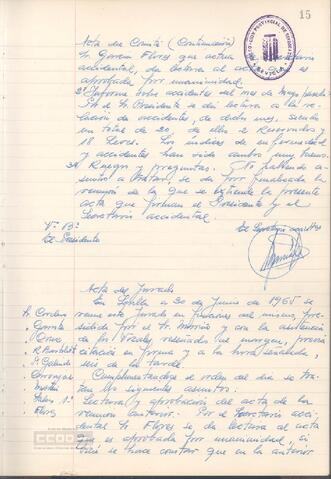 15
Acta del Comité (Continuación)
Sr. García Flores que actua Secretario
accidental, da lectura al acta que es
aprobada por unanimidad.
2º Informe sobre accidentes del mes de Mayo pasado
Por el Sr. Presidente se dió lectura a la re-
lación de accidentes, de dicho mes, siendo
un total de 20 de ellos 2 Reservados y
18 Leves. Los indices de enfermedad
y accidentes han sido
3º Ruegos y preguntas. Y no habiendo a-
suntos a tratar, se da por finalizada la
reunión de la que se extiende la presente
acta que firman el Presidente y el
Secretario accidental.
Vº Bº
El Presidente
El Secretario acctal
Acta del Jurado
En Sevilla a 30 de Junio de 1965 se
reune este Jurado en funciones del mismo, presi-
dido por el Sr. y con la asistencia
de los Vocales reseñados al margen, previa
citación en forma y a la hora señalada,
seis de la tarde.
Sr. Cordero
Garrote
Cruz
Galindo
Flores
Cumplimentandose el orden del dia se tra-
tan los siguientes asuntos.
Lectura y aprobación del acta de la
reunión anterior. Por el Secretario acci-
dental Sr. Flores se da lectura al acta
que es aprobada por unanimidad, si
bien se hace constar que en el anterior
CCOO